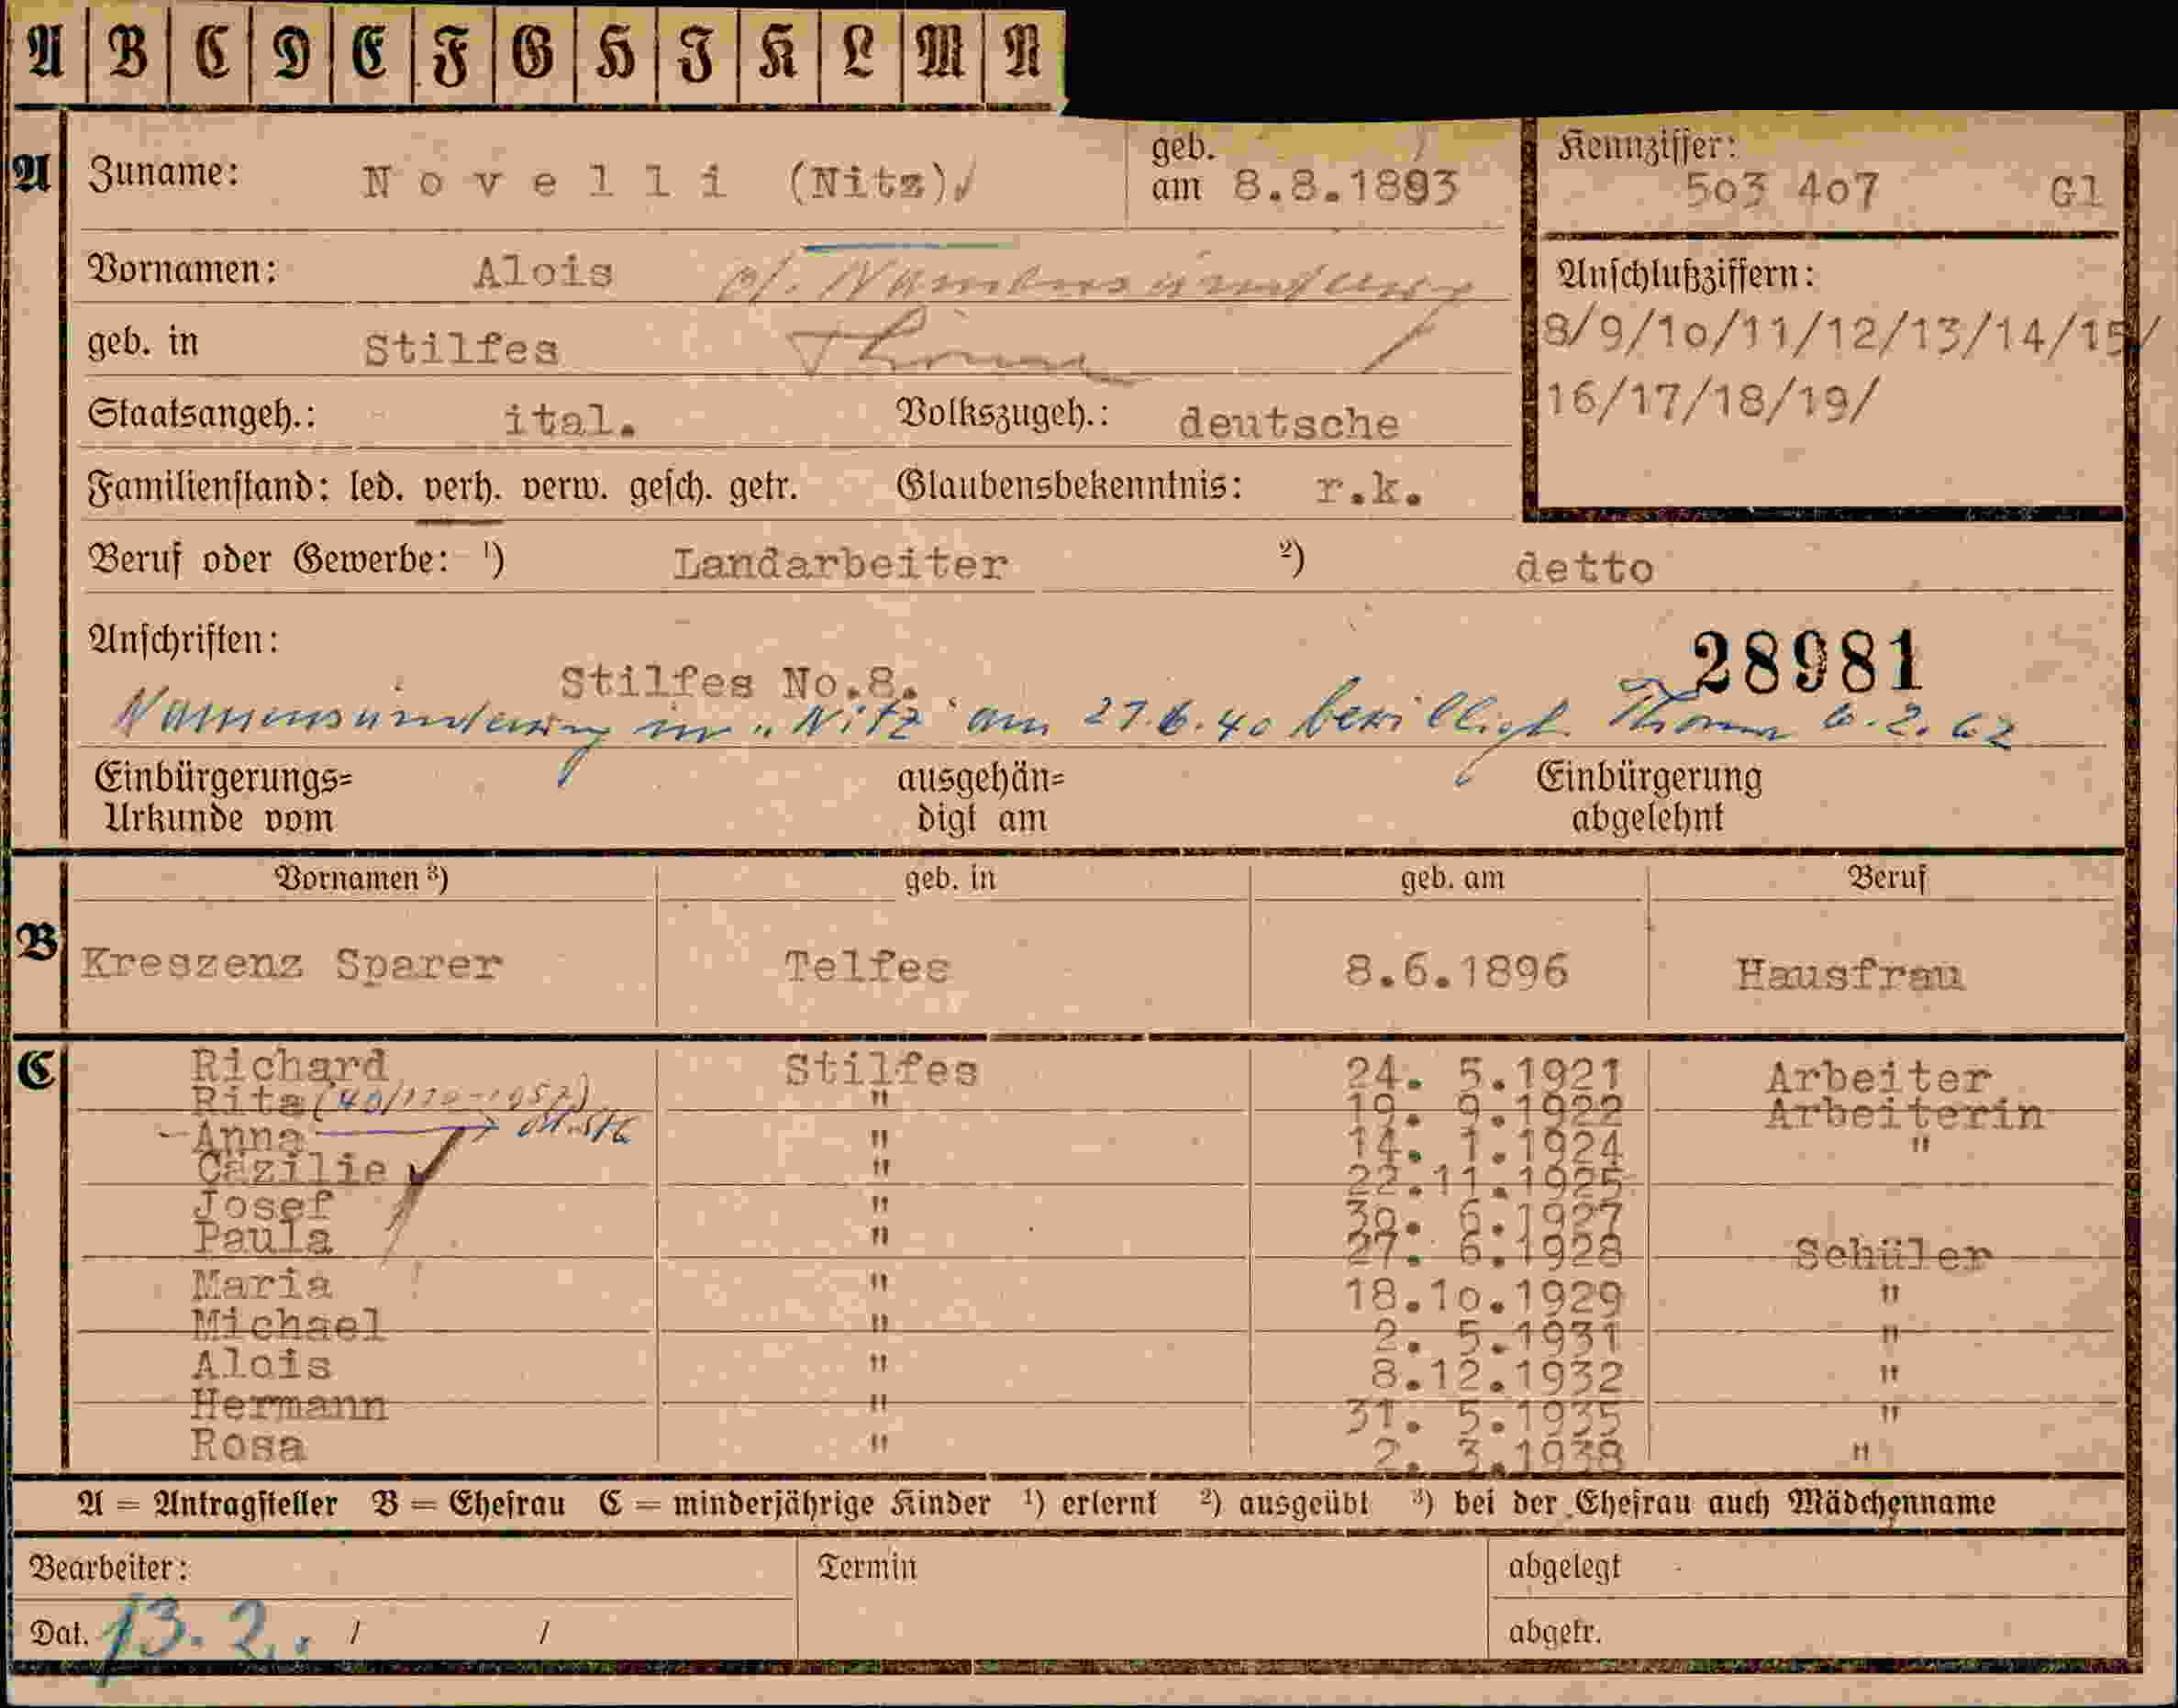 A B C D E F G H I K L M N
A Zuname: Novelli (Nitz) geb. am 8.8.1893 Kennziffer: 503 407 Gl
Vornamen: Alois Namensänderung
Anschlußziffern:
geb. in Stilfes Thoma
8/9/10/11/12/13/14/15/
Staatsangeh.: ital. Volkszugeh.: deutsche
16/17/18/19/
Familienstand: led. verh. verw. gesch. getr. Glaubensbekenntnis: r.k.
Beruf oder Gewerbe: 1) Landarbeiter 2) detto
Anschriften:
28981
Stilfes No.8.
Namensänderung in "Nitz" am 27.6.40 bewilligt. Thoma 6.2.62
Einbürgerungs= ausgehän= Einbürgerung
Urkunde vom digt am abgelehnt
Vornamen 3) geb. in geb. am Beruf
B Kreszenz Sparer Telfes 8.6.1896 Hausfrau
C Richard Stilfes 24. 5.1921 Arbeiter
Rita " 19. 9.1922 Arbeiterin
-Anna " 14. 1.1924 "
Cäzilie " 22.11.1925
Josef " 30. 6.1927
Paula " 27. 6.1928 Schüler
Maria " 18.10.1929 "
Michael " 2. 5.1931 "
Alois " 8.12.1932 "
Hermann " 31. 5.1935 "
Rosa " 2. 3.1938 "
A = Antragsteller B = Ehefrau C = minderjährige Kinder 1) erlernt 2) ausgeübt 3) bei der Ehefrau auch Mädchenname
Bearbeiter: Termin abgelegt
Dat. 13.2. / / abgetr.